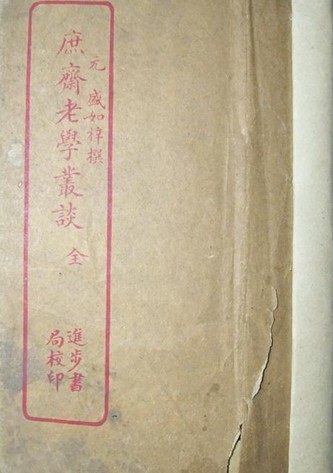 元 盛如梓撰
庶齋老學叢談 全
進步書
局校印